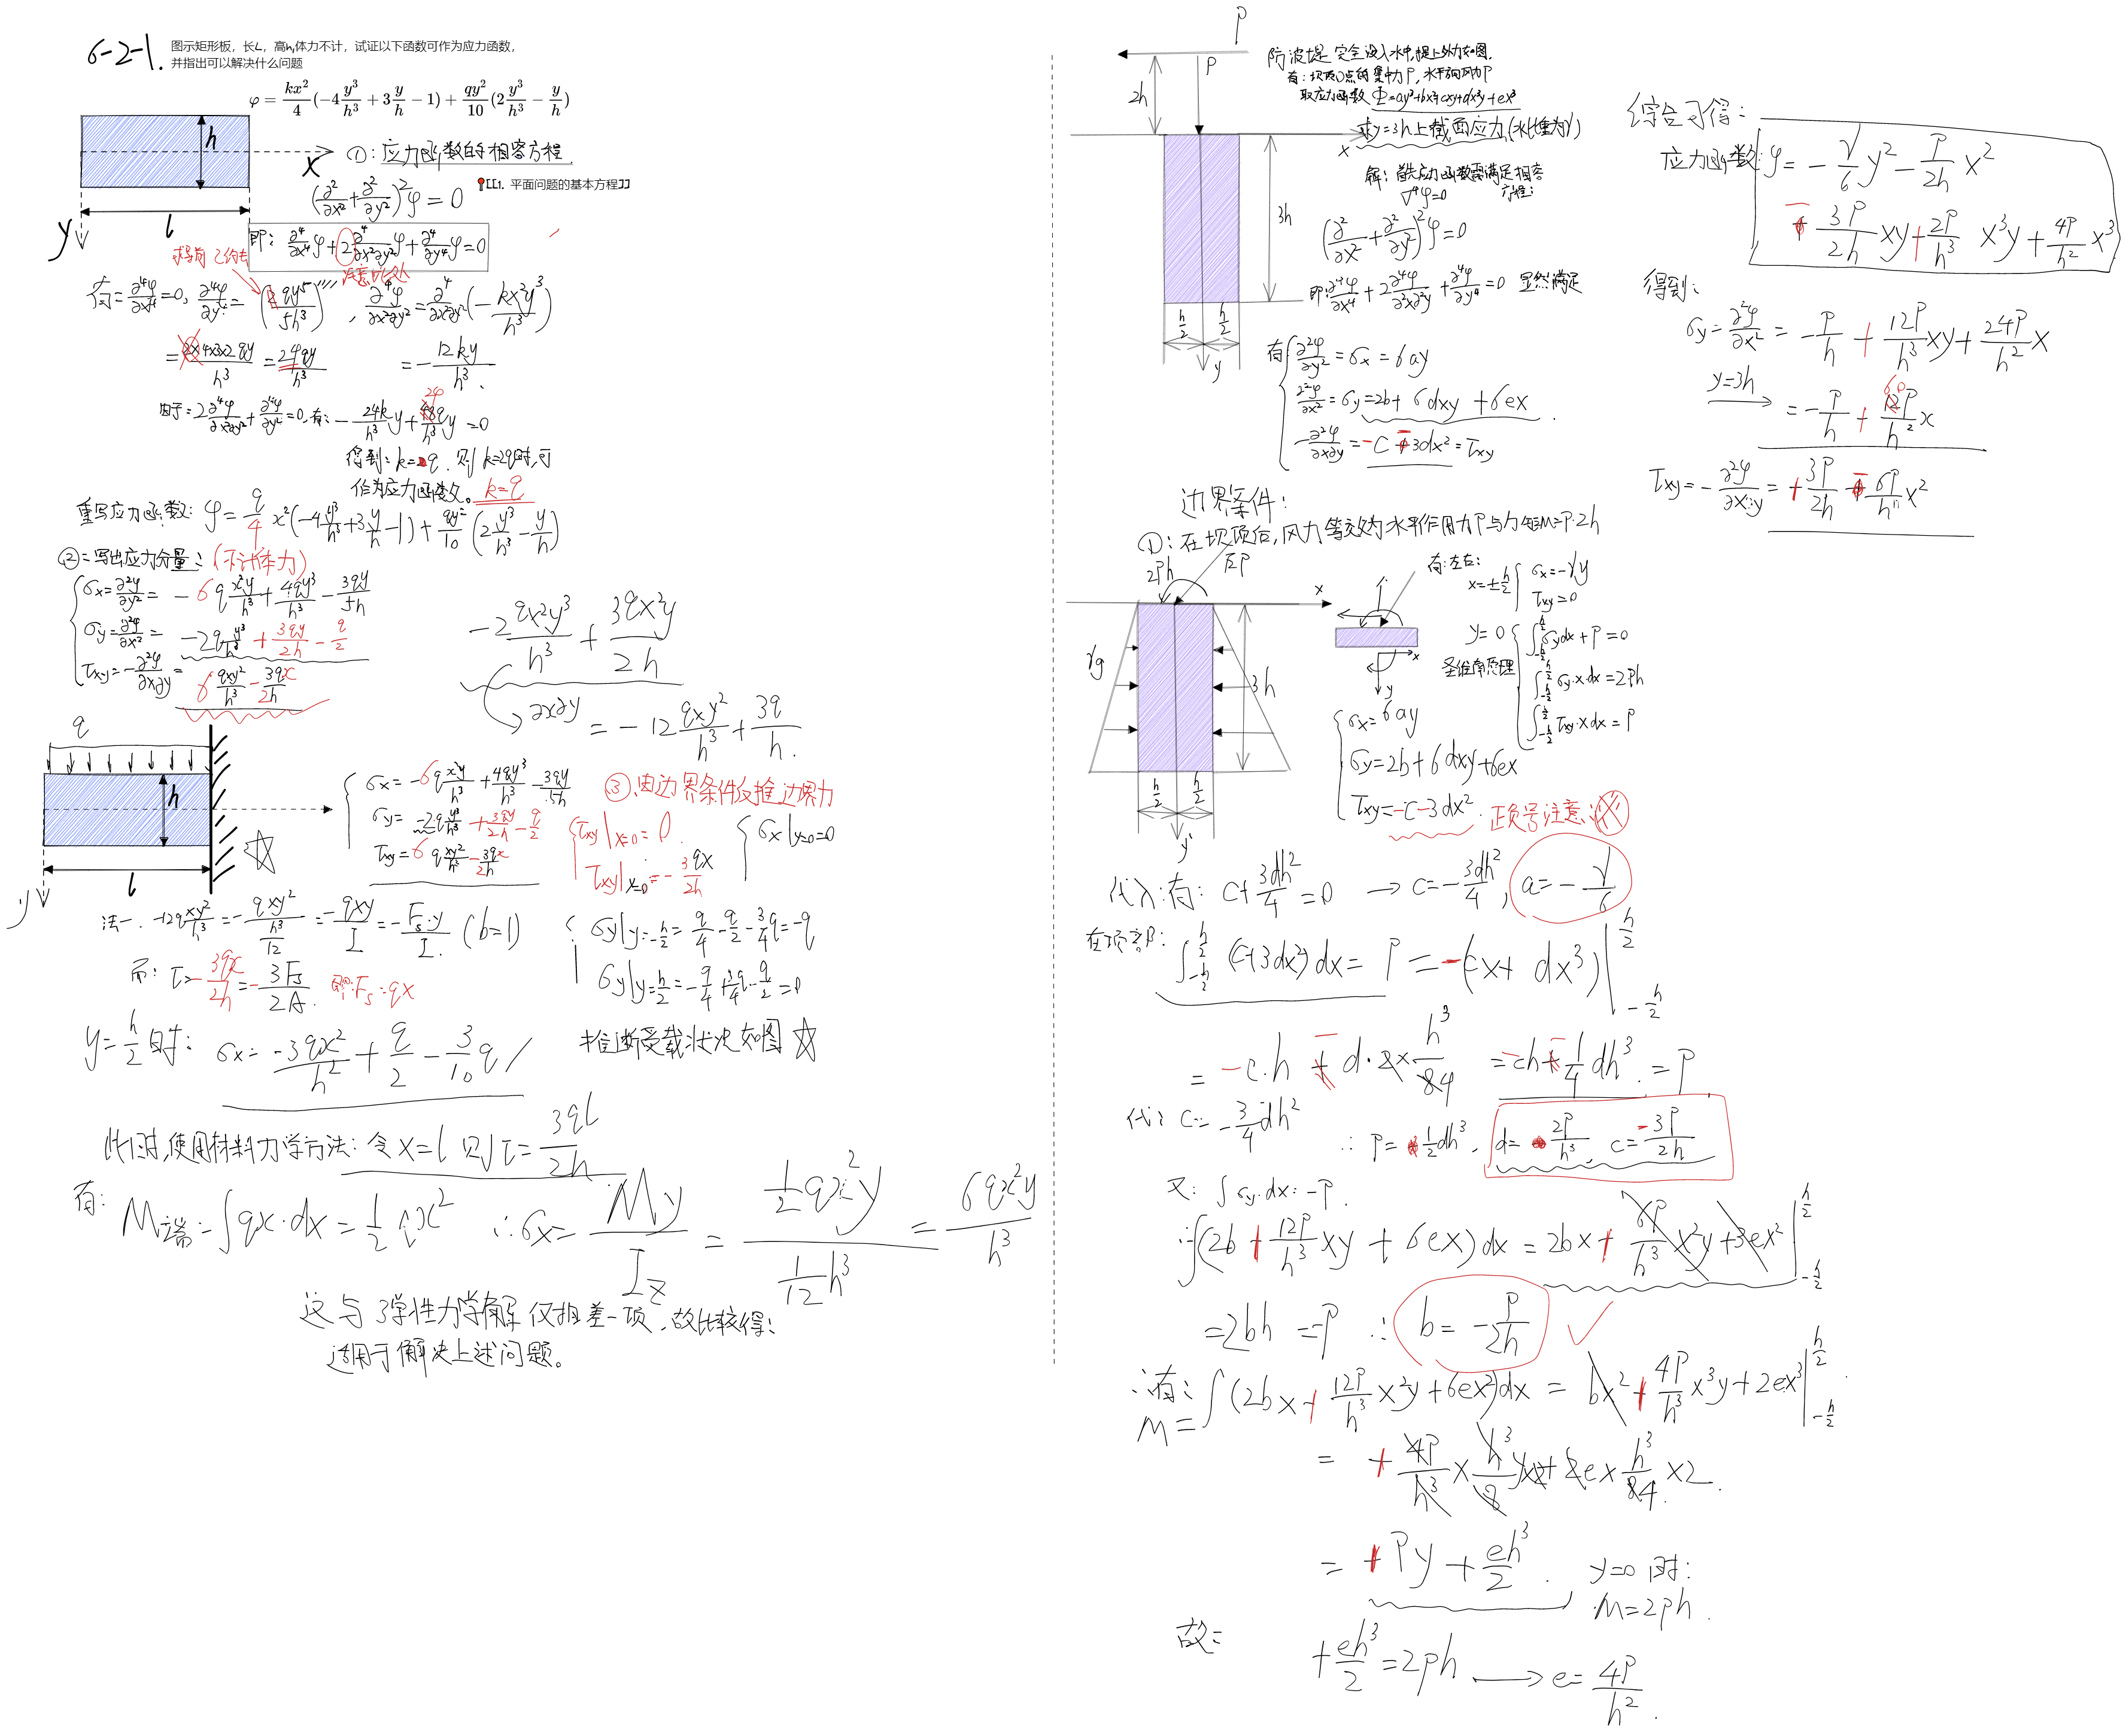 6-2-1. 图示矩形板，长L，高h,体力不计，试证以下函数可作为应力函数，
并指出可以解决什么问题
φ = kx²/4 (-4 y³/h³ + 3 y/h - 1) + qy²/10 (2 y³/h³ - y/h)
h
x
l
y
①: 应力函数的相容方程.
[[1. 平面问题的基本方程]]
(∂²/∂x² + ∂²/∂y²)² φ = 0
即: ∂⁴/∂x⁴ φ + 2 ∂⁴/∂x²∂y² φ + ∂⁴/∂y⁴ φ = 0
注意此处
有: ∂⁴φ/∂x⁴ = 0, ∂⁴φ/∂y⁴ = (qy⁵/5h³)'''' , ∂⁴φ/∂x²∂y² = ∂⁴/∂x²∂y² (- kx²y³/h³)
= 4×3×2qy/h³ = 24qy/h³ = - 12ky/h³.
由于: 2 ∂⁴φ/∂x²∂y² + ∂⁴φ/∂y⁴ = 0, 有: - 24k/h³ y + 24q/h³ y = 0
得到: k = q. 则 k=2q时,可
作为应力函数。 k=q
重写应力函数: φ = q/4 x² (-4 y³/h³ + 3 y/h - 1) + qy²/10 (2 y³/h³ - y/h)
②: 写出应力分量: (不计体力)
σx = ∂²φ/∂y² = -6q x²y/h³ + 4qy³/h³ - 3qy/5h
σy = ∂²φ/∂x² = -2q y³/h³ + 3qy/2h - q/2
τxy = - ∂²φ/∂x∂y = 6 qxy²/h³ - 3qx/2h
-2 qx²y³/h³ + 3qx²y/2h
∂x∂y = -12 qxy²/h³ + 3q/h.
q
h
l
y
σx = -6q x²y/h³ + 4qy³/h³ - 3qy/5h
σy = -2q y³/h³ + 3qy/2h - q/2
τxy = 6q xy²/h³ - 3qx/2h
③.由边界条件反推边界力
τxy|x=0 = 0.
τxy|y=0 = - 3qx/2h
σx|y=0 = 0
法一. -12q xy²/h³ = - qxy²/(h³/12) = - qxy/I = - Fs·y/I. (b=1)
而: τ = - 3qx/2h = - 3Fs/2A. 即: Fs = qx
σy|y=-h/2 = q/4 - q/2 - 3/4 q = -q
σy|y=h/2 = - q/4 + 3/4 q - q/2 = 0
y = h/2 时: σx = -3qx²/h² + q/2 - 3/10 q
推断受载状况如图☆
此时,使用材料力学方法: 令 x=l 则 τ = 3ql/2h
有: M端 = ∫qx·dx = 1/2 qx² ∴ σx = My/Iz = 1/2 qx²y / 1/12 h³ = 6qx²y/h³
这与弹性力学解仅相差一项, 故比较得:
适用于解决上述问题。
P
P
2h
x
3h
h/2 h/2
y
防波堤完全没入水中,堤上外力如图.
有: 坝顶O点的集中力P, 水平向风力P
取应力函数 Φ=ay³+bx²+cxy+dx³y+ex³
求y=3h上截面应力 (水比重为γ)
解: 首先应力函数需满足相容
方程:
∇⁴φ=0
(∂²/∂x² + ∂²/∂y²)² φ = 0
即: ∂⁴φ/∂x⁴ + 2 ∂⁴φ/∂²x∂²y + ∂⁴φ/∂y⁴ = 0 显然满足
有 ∂²φ/∂y² = σx = 6ay
∂²φ/∂x² = σy = 2b + 6dxy + 6ex.
- ∂²φ/∂x∂y = -c - 3dx² = τxy
边界条件:
①: 在坝顶后, 风力等效为水平作用力P与力矩M=P·2h
2Ph
x
γg
3h
h/2 h/2
y
有:左右:
x = ± h/2 σx = -γy
τxy = 0
x
y
y=0
圣维南原理
∫ σy dx + P = 0
∫ σy·x·dx = 2Ph
∫ τxy·x dx = P
σx = 6ay
σy = 2b + 6dxy + 6ex
τxy = -c - 3dx². 正负号注意
代入:有: c + 3dh²/4 = 0 → c = - 3dh²/4, a = - γ/6
在顶部: ∫ (c+3dx²) dx = P = -(cx + dx³) | h/2 -h/2
= -c·h - d·2× h³/8 4 = -ch - 1/4 dh³. = P
代: c = - 3/4 dh²
∴ P = 1/2 dh³. d = 2P/h³, c = -3P/2h
又: ∫σy·dx = -P.
∴ ∫(2b + 12P/h³ xy + 6ex) dx = 2bx + 6P/h³ x²y + 3ex² | h/2 -h/2
= 2bh = -P ∴ b = - P/2h
∴有:
M = ∫(2bx + 12P/h³ x²y + 6ex²)dx = bx² + 4P/h³ x³y + 2ex³ | h/2 -h/2
= + 4P/h³ × h³/8 y×2 + 2e× h³/8 4 ×2.
= + Py + eh³/2. y=0 时:
M=2Ph.
故: + eh³/2 = 2Ph → e = 4P/h².
综合可得:
应力函数: φ = - γ/6 y² - P/2h x²
- 3P/2h xy + 2P/h³ x³y + 4P/h² x³
得到:
σy = ∂²φ/∂x² = - P/h + 12P/h³ xy + 24P/h² x
y=3h → = - P/h + 60P/h² x
τxy = - ∂²φ/∂x∂y = + 3P/2h - 6P/h³ x²